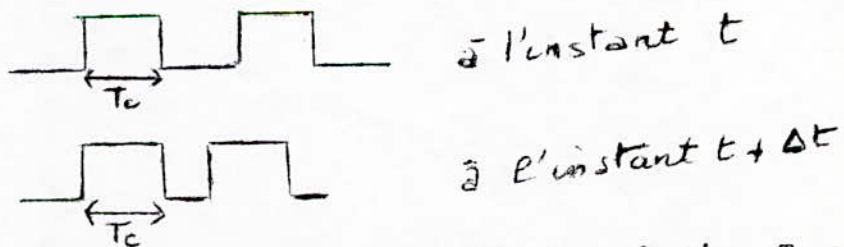 à l'instant t
Tc
à l'instant t + Δt
Tc